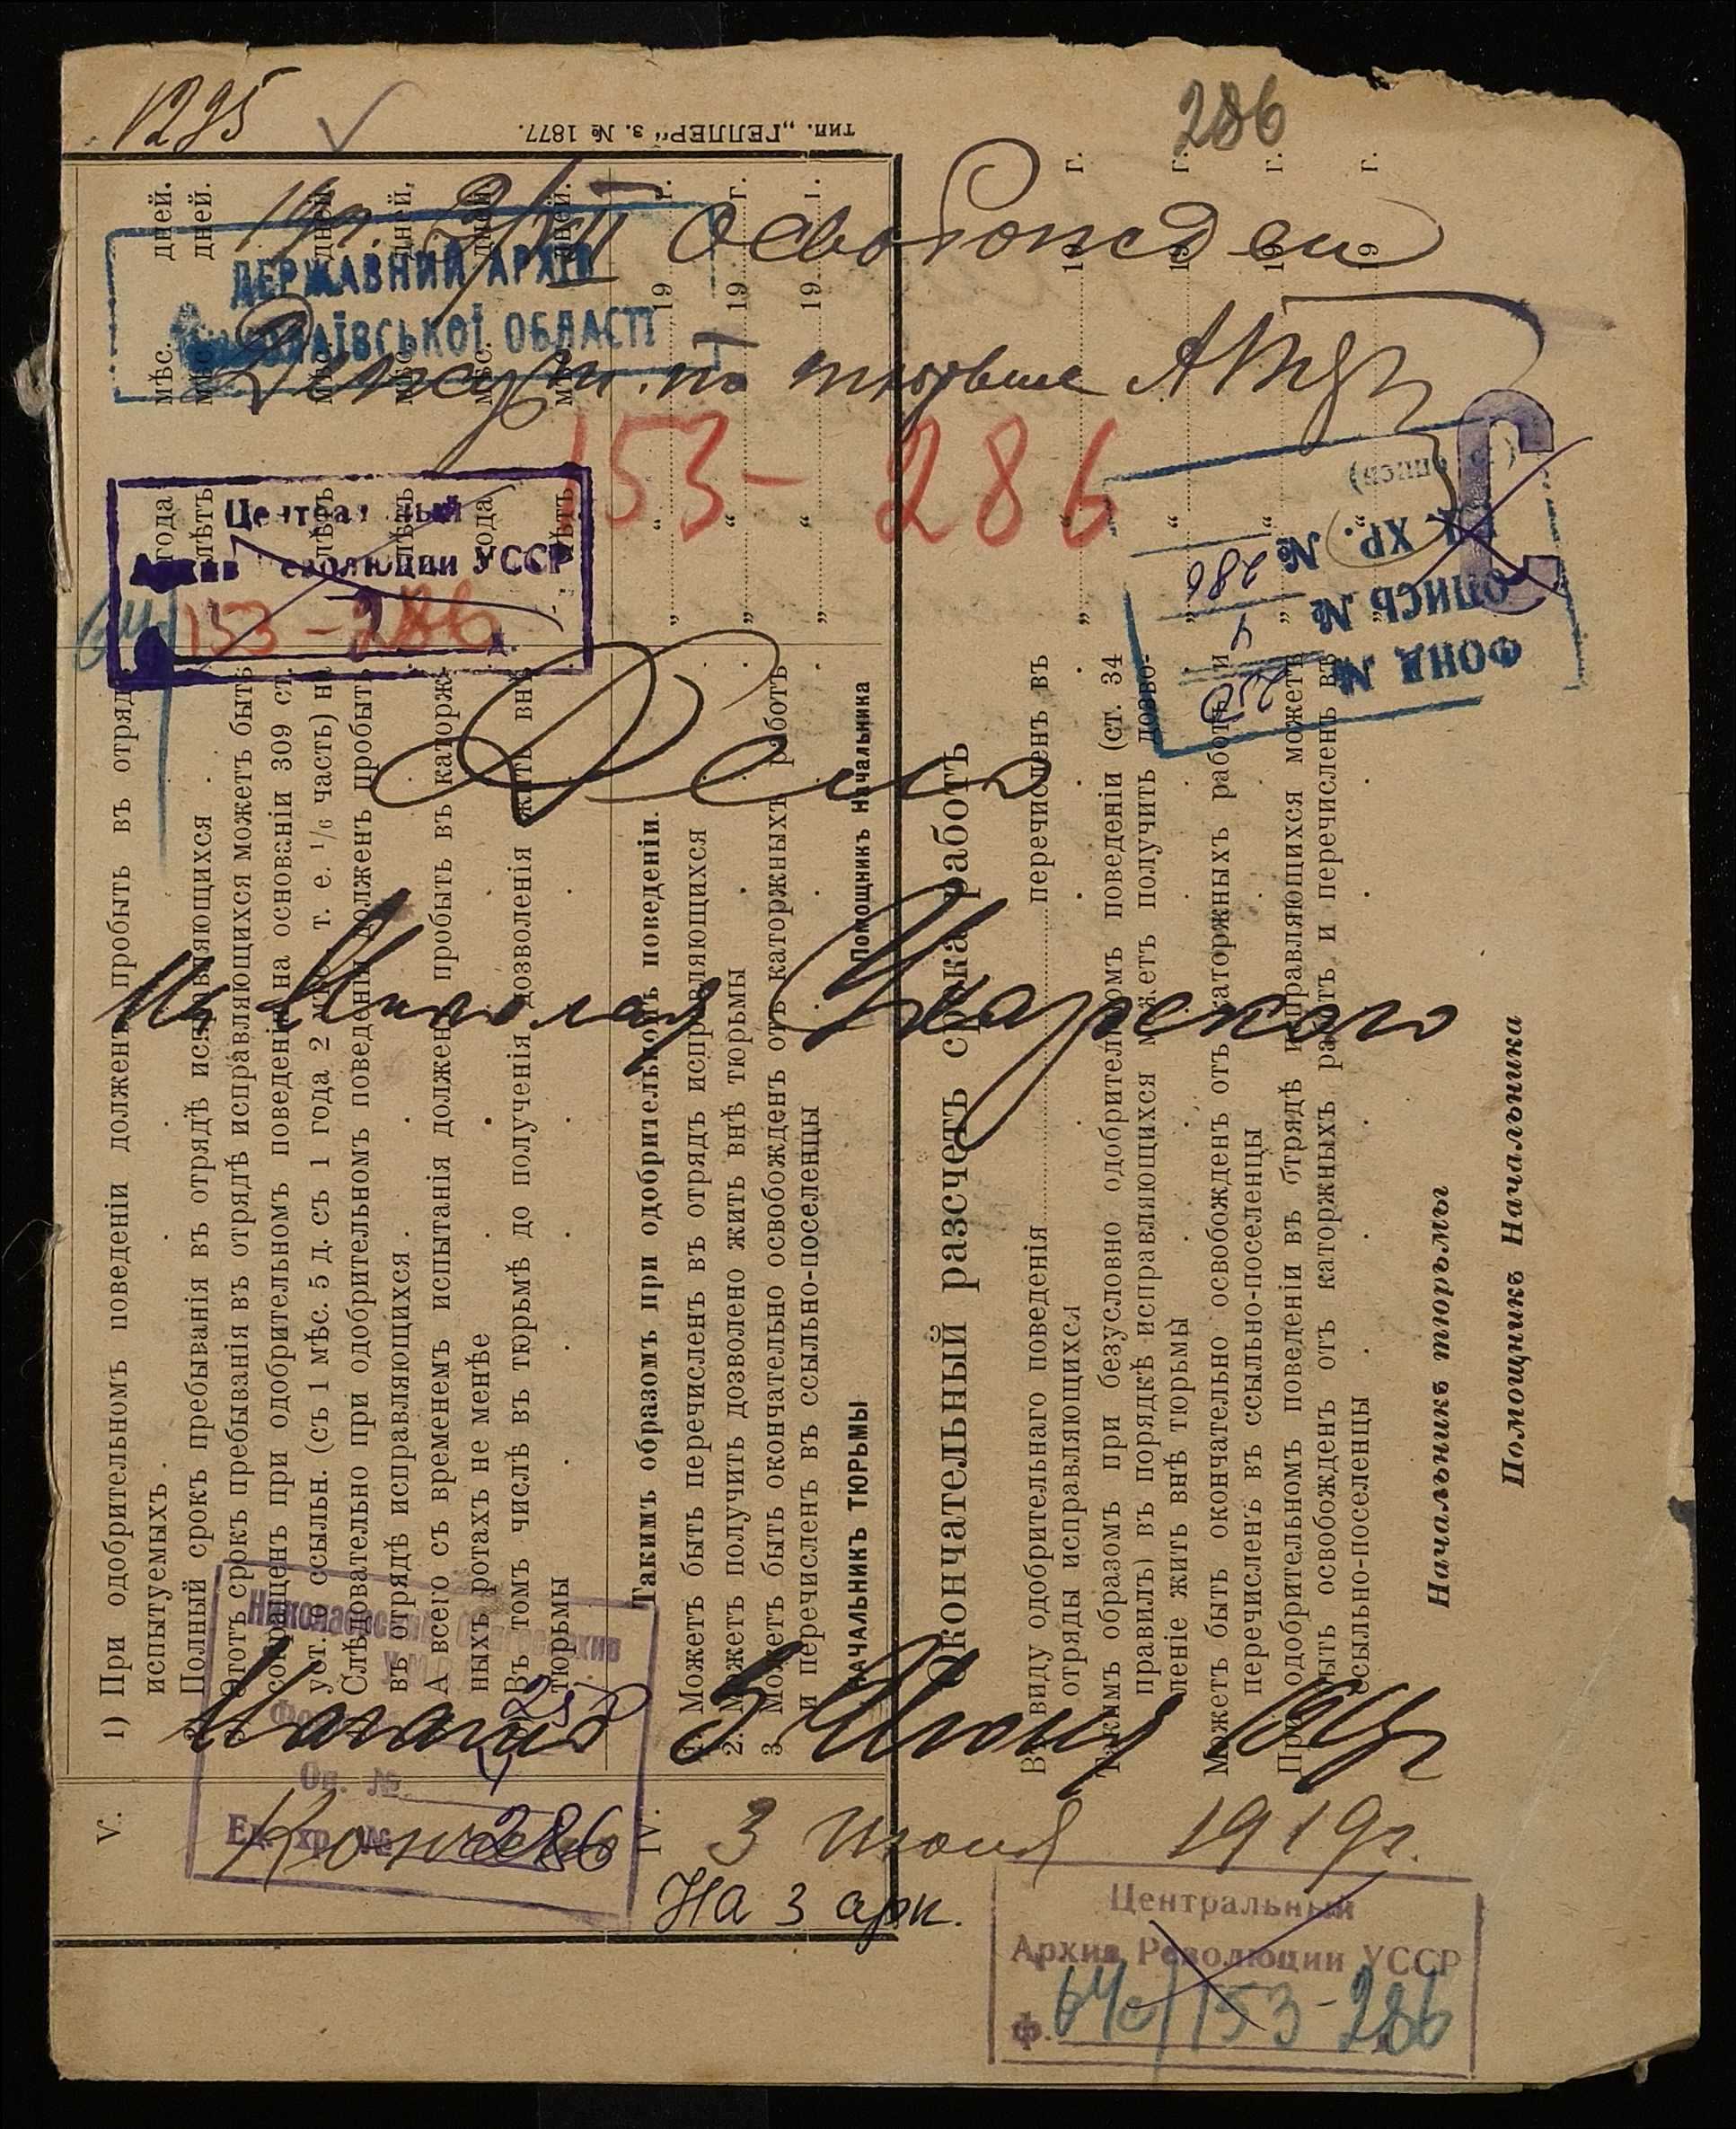 1295
286
тип. „ГЕЛЛЕРЪ“ з. № 1877.
Освобожден
Дежурн. по тюрьме
ДЕРЖАВНИЙ АРХІВ
МИКОЛАЇВСЬКОЇ ОБЛАСТІ
153-286
Центральный
Архив Революции УССР
153-286
ФОНД № 250
ОПИСЬ № 4
ЕД. ХР. № 286
(опись)
Дело
Николая
Начато 3 Июня
Кончено 3 июня 1919г.
На 3 арк.
Николаевский Облгосархив
Фонд 250
Оп. № 4
Ед. хр. № 286
Центральный
Архив Революции УССР
ф. 64с/153-286
V.
1) При одобрительномъ поведеніи долженъ пробыть въ отрядѣ
испытуемыхъ . . . года мѣс. дней.
Полный срокъ пребыванія въ отрядѣ исправляющихся . лѣтъ мѣс. дней.
Этотъ срокъ пребыванія въ отрядѣ исправляющихся можетъ быть
сокращенъ при одобрительномъ поведеніи на основаніи 309 ст.
уст. о ссыльн. (съ 1 мѣс. 5 д. съ 1 года 2 мѣс. т. е. 1/6 часть) на лѣтъ мѣс. дней.
Слѣдовательно при одобрительномъ поведеніи долженъ пробыть
въ отрядѣ исправляющихся . . . лѣтъ мѣс. дней.
А всего съ временемъ испытанія долженъ пробыть въ каторж-
ныхъ ротахъ не менѣе . . . года мѣс. дней.
Въ томъ числѣ въ тюрьмѣ до полученія дозволенія жить внѣ
тюрьмы . . . лѣтъ мѣс. дней.
IV.
Такимъ образомъ при одобрительномъ поведеніи.
1. Можетъ быть перечисленъ въ отрядъ исправляющихся „ “ 19 г.
2. Можетъ получить дозволено жить внѣ тюрьмы . . „ “ 19 г.
3. Можетъ быть окончательно освобожденъ отъ каторжныхъ работъ
и перечисленъ въ ссыльно-поселенцы . . . „ “ 19 г.
НАЧАЛЬНИКЪ ТЮРЬМЫ Помощникъ Начальника
Окончательный разсчетъ срока работъ
Въ виду одобрительнаго поведенія перечисленъ въ
отряды исправляющихся . . . „ “ 19 г.
Такимъ образомъ при безусловно одобрительномъ поведеніи (ст. 34
правилъ) въ порядкѣ исправляющихся можетъ получить дозво-
леніе жить внѣ тюрьмы . . . „ “ 19 г.
Можетъ быть окончательно освобожденъ отъ каторжныхъ работъ и
перечисленъ въ ссыльно-поселенцы . . . „ “ 19 г.
При одобрительномъ поведеніи въ отрядѣ исправляющихся можетъ
быть освобожденъ отъ каторжныхъ работъ и перечисленъ въ
ссыльно-поселенцы . . . „ “ 19 г.
Начальникъ тюрьмы
Помощникъ Начальника